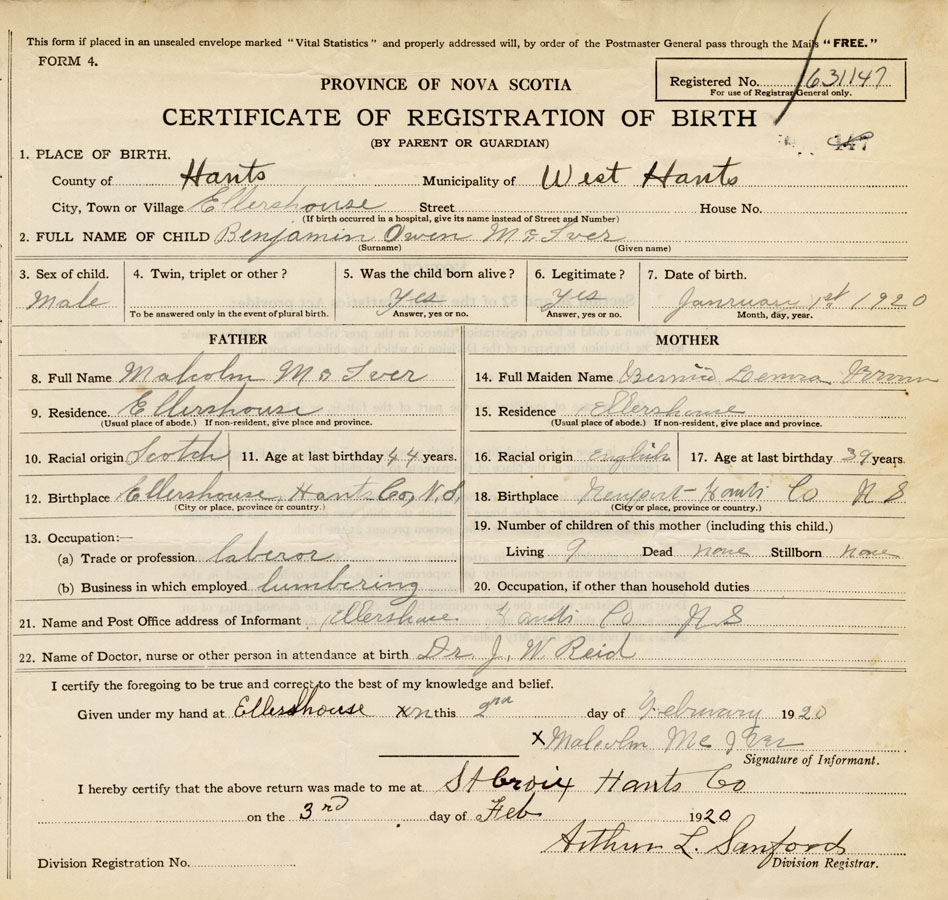 This form if placed in an unsealed envelope marked "Vital Statistics" and properly addressed will, by order of the Postmaster General pass through the Mails "FREE."
FORM 4.
PROVINCE OF NOVA SCOTIA
Registered No. 631147
For use of Registrar General only.
CERTIFICATE OF REGISTRATION OF BIRTH
(BY PARENT OR GUARDIAN)
1. PLACE OF BIRTH.
County of Hants Municipality of West Hants
City, Town or Village Ellershouse Street House No.
(If birth occurred in a hospital, give its name instead of Street and Number)
2. FULL NAME OF CHILD Benjamin Owen McIver
(Surname) (Given name)
3. Sex of child. 4. Twin, triplet or other? 5. Was the child born alive? 6. Legitimate? 7. Date of birth.
Male yes yes January 1st 1920
To be answered only in the event of plural birth. Answer, yes or no. Answer, yes or no. Month, day, year.
FATHER MOTHER
8. Full Name Malcolm McIver 14. Full Maiden Name
9. Residence. Ellershouse 15. Residence Ellershouse
(Usual place of abode.) If non-resident, give place and province. (Usual place of abode.) If non-resident, give place and province.
10. Racial origin Scotch 11. Age at last birthday 44 years. 16. Racial origin English 17. Age at last birthday 39 years.
12. Birthplace Ellershouse, Hants Co, N.S. 18. Birthplace Newport Hants Co N S
(City or place, province or country.) (City or place, province or country.)
19. Number of children of this mother (including this child.)
13. Occupation:—
(a) Trade or profession laberor Living 9 Dead none Stillborn none
(b) Business in which employed lumbering 20. Occupation, if other than household duties
21. Name and Post Office address of Informant Ellershouse Hants Co N S
22. Name of Doctor, nurse or other person in attendance at birth Dr. J. W Reid
I certify the foregoing to be true and correct to the best of my knowledge and belief.
Given under my hand at Ellershouse on this 2nd day of February 1920
x Malcolm Mc Iver
Signature of Informant.
I hereby certify that the above return was made to me at St Croix Hants Co
on the 3rd day of Feb 1920
Arthur L. Sanford
Division Registrar.
Division Registration No.